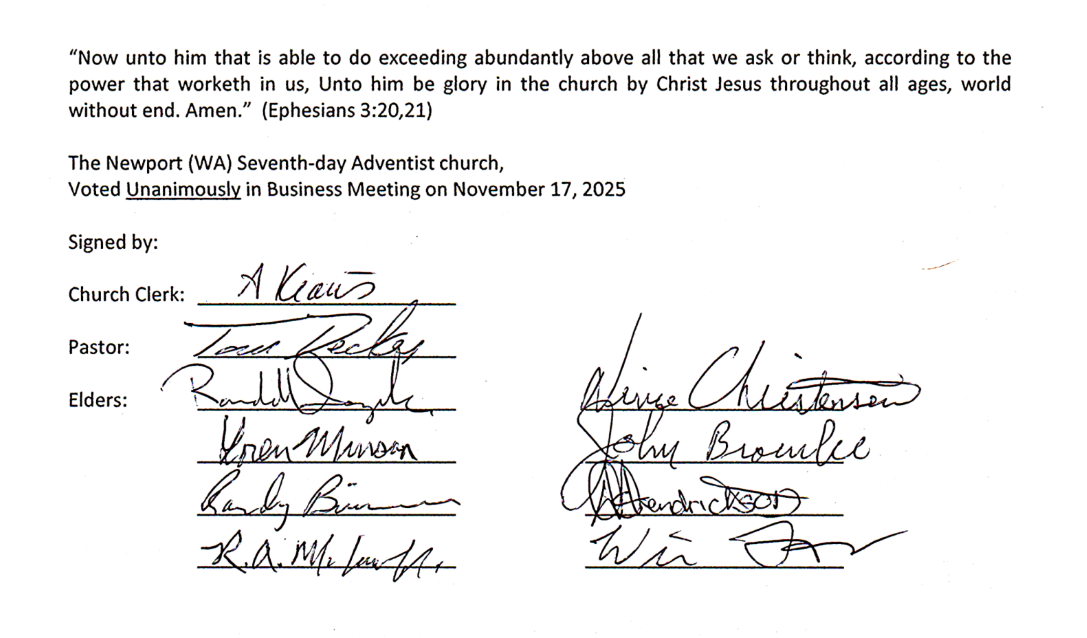 “Now unto him that is able to do exceeding abundantly above all that we ask or think, according to the
power that worketh in us, Unto him be glory in the church by Christ Jesus throughout all ages, world
without end. Amen.” (Ephesians 3:20,21)
The Newport (WA) Seventh-day Adventist church,
Voted Unanimously in Business Meeting on November 17, 2025
Signed by:
Church Clerk: A
Pastor: Tom
Elders:
Christensen
Loren Munson
John
Randy
Hendrickson
R.A.